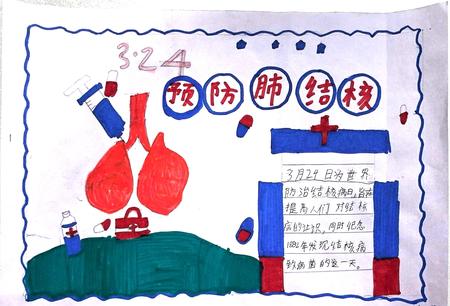 3.24
预防肺结核
3月24日为世界
防治结核病日,旨在
提高人们对结核
病的认识,同时纪念
1882年发现结核病
致病菌的这一天。